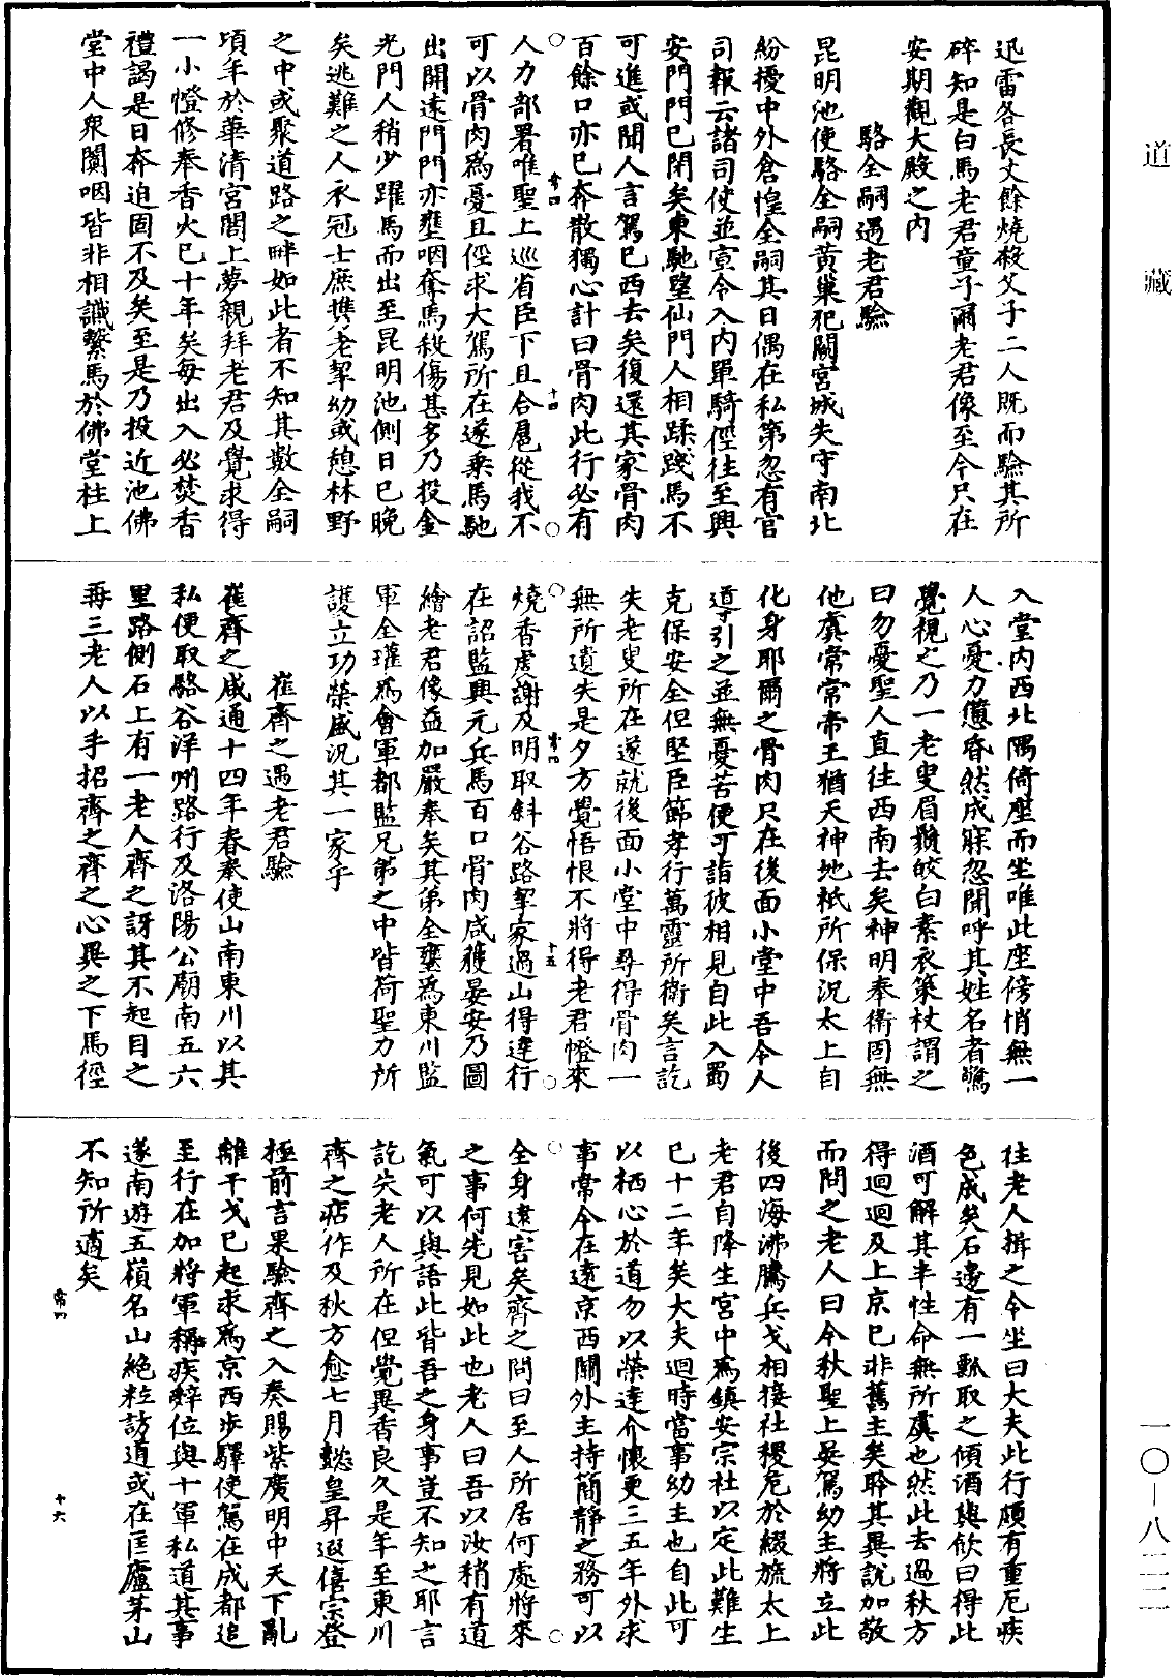 道藏
迅雷各長丈餘燒殺父子二人既而驗其所
碎知是白馬老君童子爾老君像至今只在
安期觀大殿之內
駱全嗣遇老君驗
昆明池使駱全嗣黃巢犯闕宮城失守南北
紛擾中外倉惶全嗣其日偶在私第忽有官
司報云諸司使並宣令入內單騎徑往至興
安門門已閉矣東馳望仙門人相蹂踐馬不
可進或聞人言駕已西去矣復還其家骨肉
百餘口亦已奔散獨心計曰骨肉此行必有
常四
十四
人力部署唯聖上巡省臣下且合扈從我不
可以骨肉為憂且徑求大駕所在遂乘馬馳
出開遠門門亦壅咽奪馬殺傷甚多乃投金
光門人稍少躍馬而出至昆明池側日已晚
矣逃難之人衣冠士庶攜老挈幼或憩林野
之中或聚道路之畔如此者不知其數全嗣
頃年於華清宮閤上夢親拜老君及覺求得
一小憕修奉香火已十年矣每出入必焚香
禮謁是日奔迫固不及矣至是乃投近池佛
堂中人眾闐咽皆非相識繫馬於佛堂柱上
入堂內西北隅倚座而坐唯此座傍悄無一
人心憂力憊昏然成寐忽聞呼其姓名者驚
覺視之乃一老叟眉鬢皎白素衣策杖謂之
曰勿憂聖人直往西南去矣神明奉衛固無
他虞常常帝王猶天神地祇所保況太上自
化身耶爾之骨肉只在後面小堂中吾令人
導引之並無憂苦便可詣彼相見自此入蜀
克保安全但堅臣節孝行萬靈所衛矣言訖
失老叟所在遂就後面小堂中尋得骨肉一
無所遺失是夕方覺悟恨不將得老君憕來
常四
十五
燒香虔謝及明取斜谷路挈家過山得達行
在詔監興元兵馬百口骨肉咸獲晏安乃圖
繪老君像益加嚴奉矣其弟全壅為東川監
軍全瓘為會軍都監兄弟之中皆荷聖力所
護立功榮盛況其一家乎
崔齊之遇老君驗
崔齊之咸通十四年春奉使山南東川以其
私便取駱谷洋州路行及洛陽公廟南五六
里路側石上有一老人齊之訝其不起目之
再三老人以手招齊之齊之心異之下馬徑
往老人揖之令坐曰大夫此行頗有重厄疾
色成矣石邊有一瓢取之傾酒與飲曰得此
酒可解其半性命無所虞也然此去過秋方
得迴迴及上京已非舊主矣聆其異說加敬
而問之老人曰今秋聖上晏駕幼主將立此
後四海沸騰兵戈相接社稷危於綴旒太上
老君自降生宮中為鎮安宗社以定此難生
已十二年矣大夫迴時當事幼主也自此可
以栖心於道勿以榮達介懷更三五年外求
事常令在遠京西關外主持簡靜之務可以
全身遠害矣齊之問曰至人所居何處將來
之事何先見如此也老人曰吾以汝稍有道
氣可以與語此皆吾之身事豈不知之耶言
訖失老人所在但覺異香良久是年至東川
齊之痁作及秋方愈七月懿皇昇遐僖宗登
極前言果驗齊之入奏賜紫廣明中天下亂
離干戈已起求為京西步驛使駕在成都追
至行在加將軍稱疾辭位與十軍私道其事
遂南遊五嶺名山絕粒訪道或在匡廬茅山
不知所適矣
常四
十六
一〇—八二二